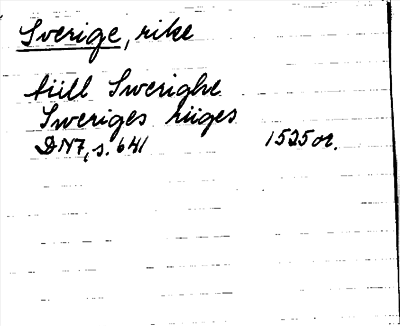 Sverige, rike
tiill Swerighe
Sweriges riiges
DN7, s. 641 1525 or.